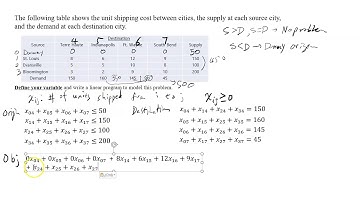 The following table shows the unit shipping cost between cities, the supply at each source city,
and the demand at each destination city.
S>D, S=D → No problem
S<D → Dummy origin
4 5 6 7
Destination
Source Terre Haute Indianapolis Ft. Wayne South Bend Supply
0 Dummy 0 0 0 0 50
1 St. Louis 8 6 12 9 150
2 Evansville 5 5 10 8 100
3 Bloomington 3 2 9 10 200
Demand 150 160 145 45
450
500
Define your variable and write a linear program to model this problem.
Xij: # of units shipped from i to j
Xij≥0
Destination
Origin
x04 + x05 + x06 + x07 ≤ 50
x14 + x15 + x16 + x17 ≤ 150
x24 + x25 + x26 + x27 ≤ 100
x34 + x35 + x36 + x37 ≤ 200
x04 + x14 + x24 + x34 = 150
x05 + x15 + x25 + x35 = 160
x06 + x16 + x26 + x36 = 145
x07 + x17 + x27 + x37 = 45
Obj
0x04 + 0x05 + 0x06 + 0x07 + 8x14 + 6x15 + 12x16 + 9x17
+ x24 + x25 + x26 + x27